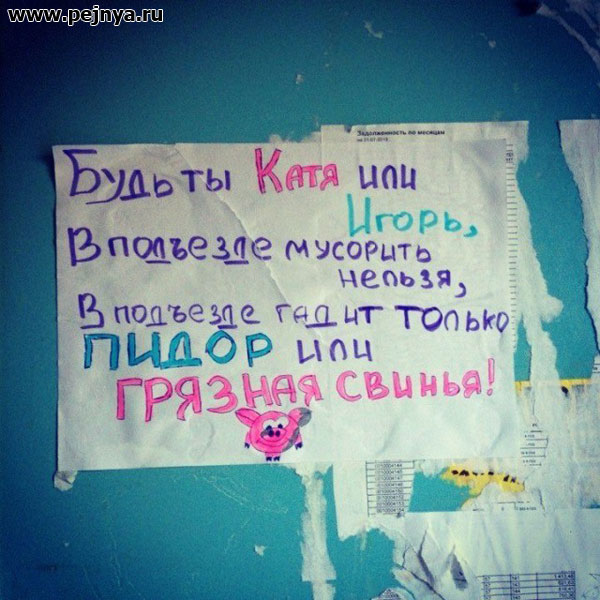 www.pejnya.ru
Задолженность по месяцам
Будь ты Катя или
Игорь,
В подъезде мусорить
нельзя,
В подъезде гадит только
ПИДОР или
ГРЯЗНАЯ СВИНЬЯ!